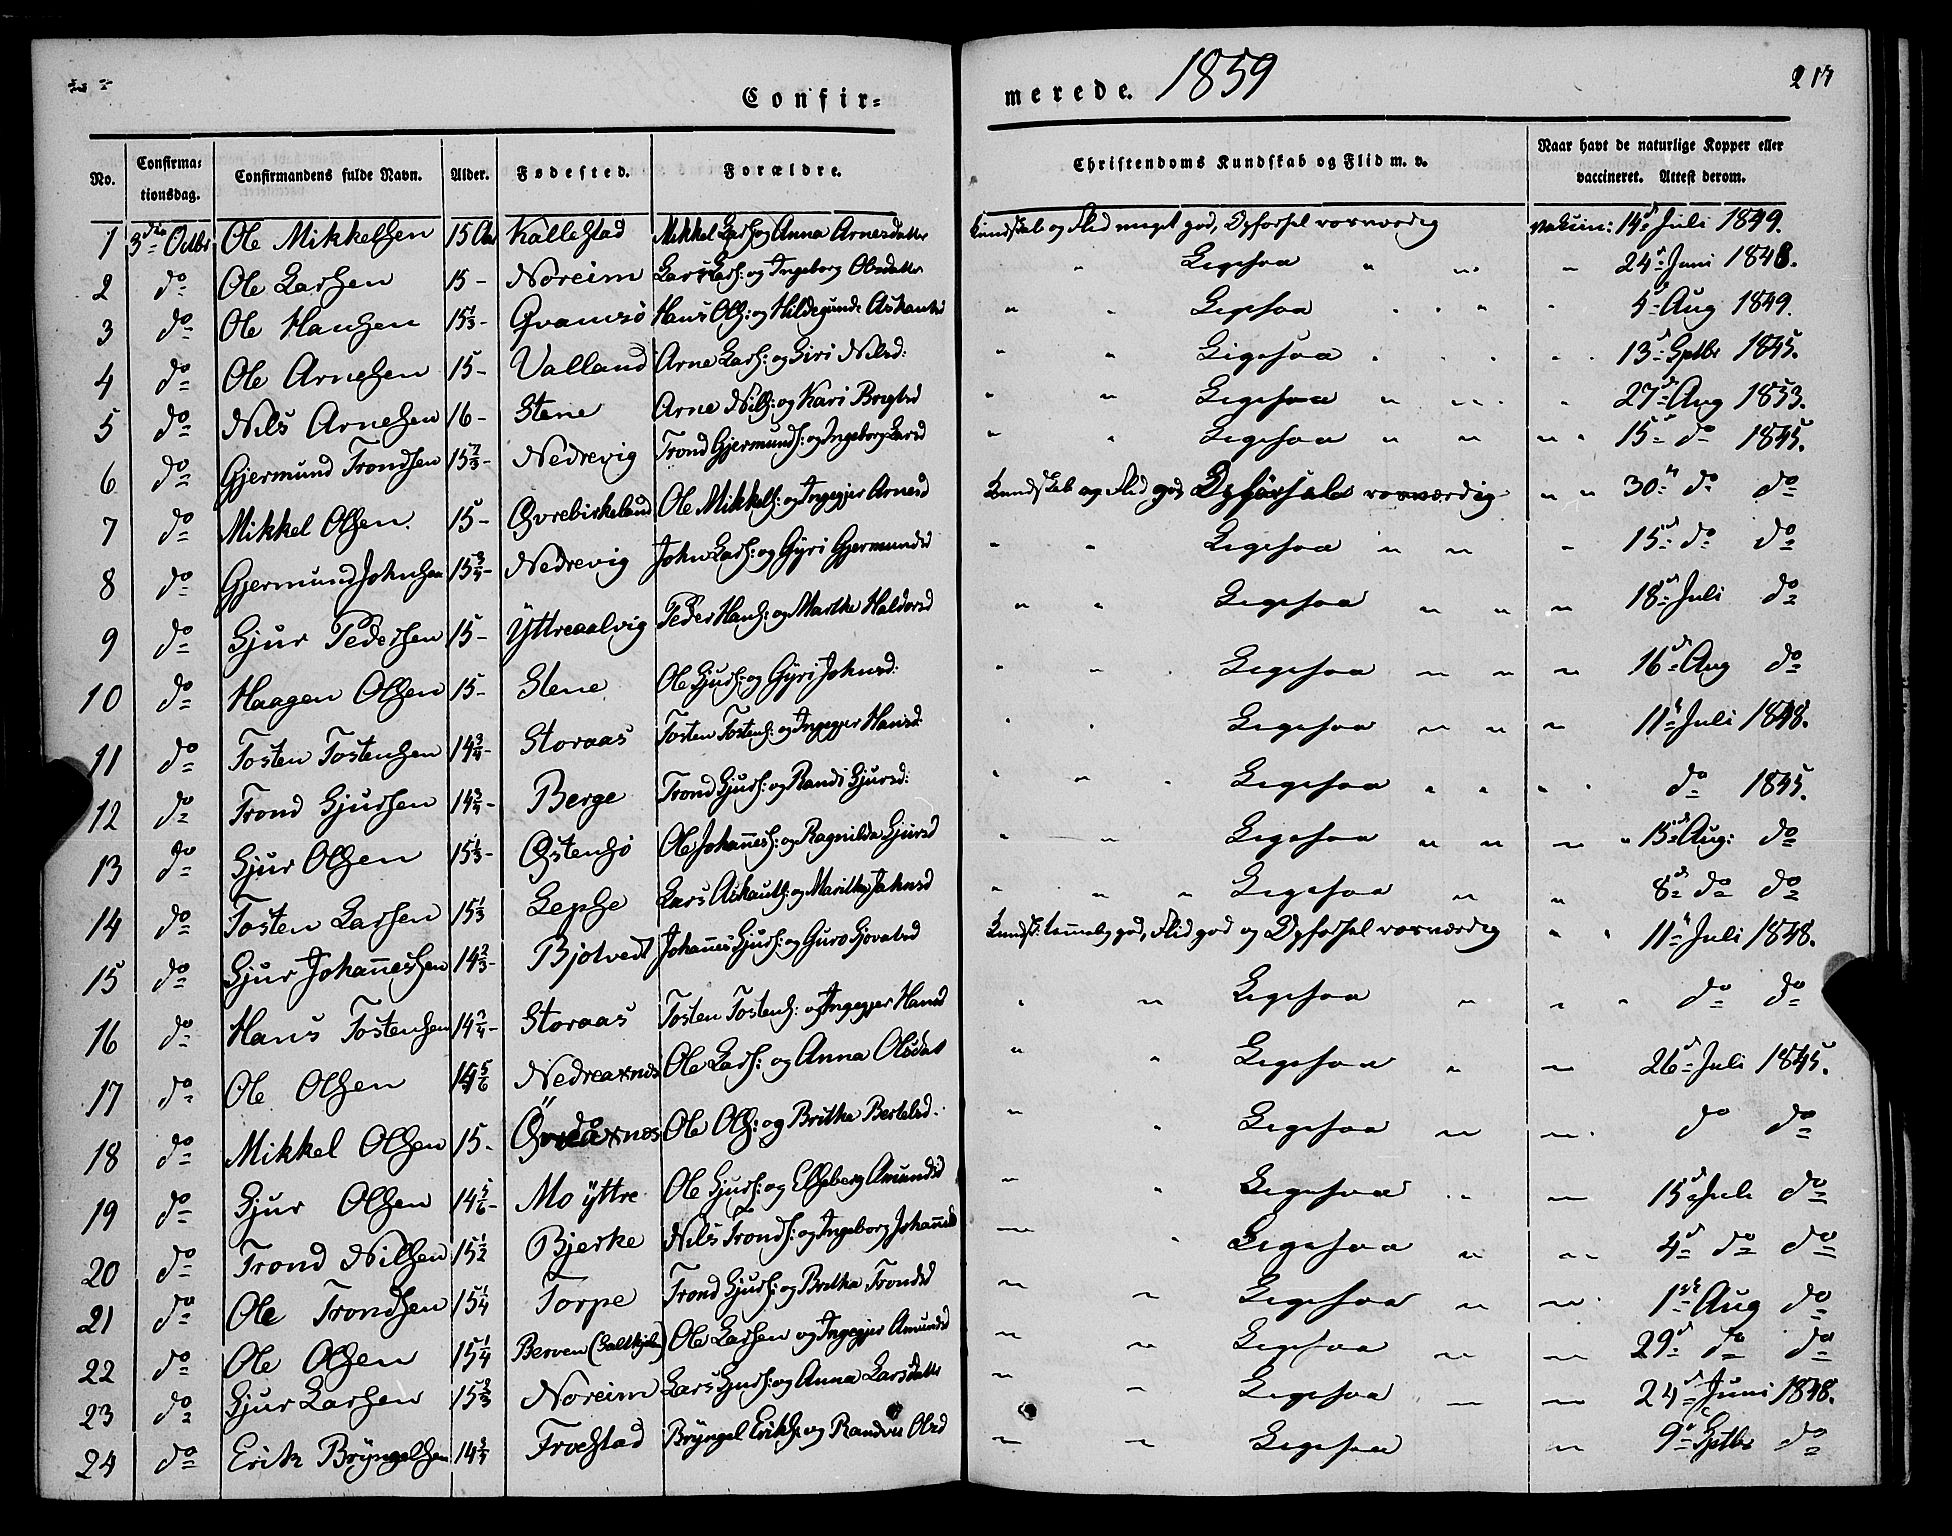 Confir= merede. 1859
No. Confirma= tionsdag. Confirmandens fulde Navn. Alder. Fødested. Forældre. Christendoms Kundskab og Flid m. v. Naar havt de naturlige Kopper eller vaccineret. Attest derom.
1 3die Octbr Ole Mikkelsen 15 Aar Kallestad Mikkel Lars: og Anna Arnesdatter Kundskab og Flid meget god, Opførsel rosværdig vakcin: 14d Juli 1849.
2 do Ole Larsen 15 - Noreim Lars Lars: og Ingeborg Olsdatter " Ligesaa " " " 24d Juni 1848.
3 do Ole Hansen 15 1/3 - Qvamsø Hans Ols: og Hildegunde " " Ligesaa " " " 5d Aug 1849.
4 do Ole Arnesen 15 - Valland Arne Lars: og Siri Nilsd: " " Ligesaa " " " 13d Sptbr 1845.
5 do Nils Arnesen 16 - Stene Arne Nils: og Kari " " Ligesaa " " " 27d Aug 1853.
6 do Gjermund Trondsen 15 2/3 - Nedrevig Trond Gjermunds: og Ingeborg Larsd " " Ligesaa " " " " 15d do 1845.
7 do Mikkel Olsen. 15 - Øvrebirkeland Ole Mikkels: og Ingegjer Arnesd Kundskab og Flid god Opførsel rosværdig " " 30te do do
8 do Gjermund Johnsen 15 3/4 - Nedrevig John Lars: og Gyri Gjermundsd " " Ligesaa " " " 15d do do
9 do Sjur Pedersen 15 - Yttreaalvig Peder Hans: og Martha Haldorsd " " Ligesaa " " " 18d Juli do
10 do Haagen Olsen 15 - Stene Ole Sjurs: og Gyri Johnsd: " " Ligesaa " " " 16d Aug do
11 do Tosten Tostensen 14 3/4 - Storaas Tosten Tostens: og Ingegjer Hansd: " " Ligesaa " " " 11te Juli 1848.
12 do Trond Sjursen 14 3/4 - Berge Trond Sjurs: og Randi Sjursd: " " " Ligesaa " " " " do 1845.
13 do Sjur Olsen 15 1/3 - Østensø Ole Johannes: og Ragnilda Sjursd " " Ligesaa " " " " 15d Aug: do
14 do Tosten Larsen 15 1/3 Lepse Lars og Maritha Johnsd " " " Ligesaa " " 8d do do
15 do Sjur Johannessen 14 2/3 - Bjotvedt Johannes Sjurs: og Guro Kundsk: temmelig god, Flid god og Opførsel rosværdig " " 11te Juli 1848.
16 do Hans Tostensen 14 2/4 - Storaas Tosten Tostens: og Ingegjer Hansd " " Ligesaa " " " do do
17 do Ole Olsen 14 5/6 Ole Lars: og Anna Olsdat " " Ligesaa " " 26d Juli 1845.
18 do Mikkel Olsen 15 - Ole Ols: og Britha Bertelsd. " " Ligesaa " " do do
19 do Sjur Olsen 14 5/6 - Mo yttre Ole Sjurs: og Elseberg Amundsd " " Ligesaa " " 15d Juli do
20 do Trond Nilsen 15 1/2 Bjerke Nils Tronds: og Ingeborg Johannesd " " Ligesaa " " 4d do do
21 do Ole Trondsen 15 1/4 Torpe Trond Sjurs: og Britha Trondsd " " Ligesaa " " 1ste Aug do
22 do Ole Olsen 15 1/4 Berven Ole Larsen og Ingegjer Amundsd " " Ligesaa " " 29d do do
23 do Sjur Larsen 15 2/3 Noreim Lars Sjurs: og Anna Larsdatter " " Ligesaa " " 24d Juni 1848.
24 do Erik Bryngelsen 14 3/4 Froestad Bryngel Eriks: og Randvei Olsd " " Ligesaa " 9d Sptbr do